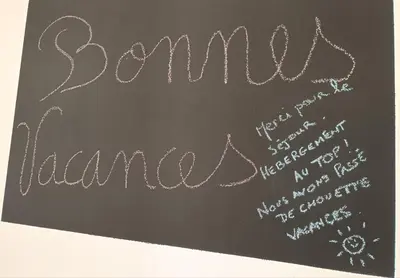 Bonnes
Vacances
Merci pour le
SÉJOUR.
HEBERGEMENT
AU TOP !
NOUS AVONS PASSÉ
DE CHOUETTE
VACANCES.